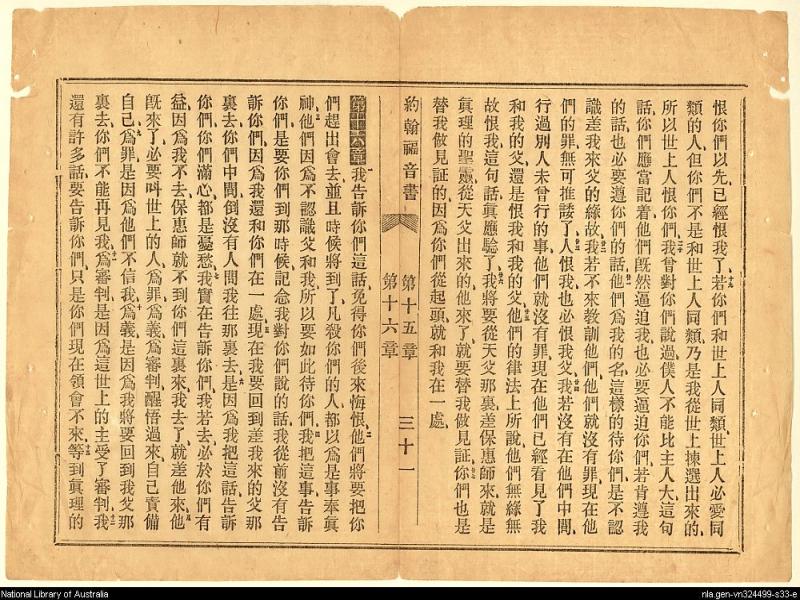 恨你們以先已經恨我了若你們和世上人同類世上人必愛同
類的人但你們不是和世上人同類乃是我從世上揀選出來的
所以世上人恨你們我曾對你們說過僕人不能比主人大這句
話你們應當記着他們旣然逼迫我也必要逼迫你們若肯遵我
的話也必要遵你們的話他們爲我的名這樣的待你們是不認
識差我來父的緣故我若不來敎訓他們他們就沒有罪現在他
們的罪無可推諉了人恨我也必恨我父我若沒有在他們中間
行過別人未曾行的事他們就沒有罪現在他們已經看見了我
和我的父還是恨我和我的父他們的律法上所說他們無緣無
故恨我這句話眞應驗了我將要從天父那裏差保惠師來就是
眞理的聖靈從天父出來的他來了就要替我做見証你們也是
替我做見証的因爲你們從起頭就和我在一處
約翰福音書 第十五章 第十六章 三十一
第十六章 我告訴你們這話免得你們後來悔恨他們將要把你
們趕出會去並且時候將到了凡殺你們的人都以爲是事奉眞
神他們因爲不認識父和我所以要如此待你們我把這事告訴
你們是要你們到那時候記念我對你們說的話我從前沒有告
訴你們因爲我還和你們在一處現在我要回到差我來的父那
裏去你們中間倒沒有人問我往那裏去是因爲我把這話告訴
你們你們滿心都是憂愁我實在告訴你們我若去必於你們有
益因爲我不去保惠師就不到你們這裏來我去了就差他來他
旣來了必要叫世上的人爲罪爲義爲審判醒悟過來自己責備
自己爲罪是因爲他們不信我爲義是因爲我將要回到我父那
裏去你們不能再見我爲審判是因爲這世上的主受了審判我
還有許多話要告訴你們只是你們現在領會不來等到眞理的
National Library of Australia
nla.gen-vn324499-s33-e